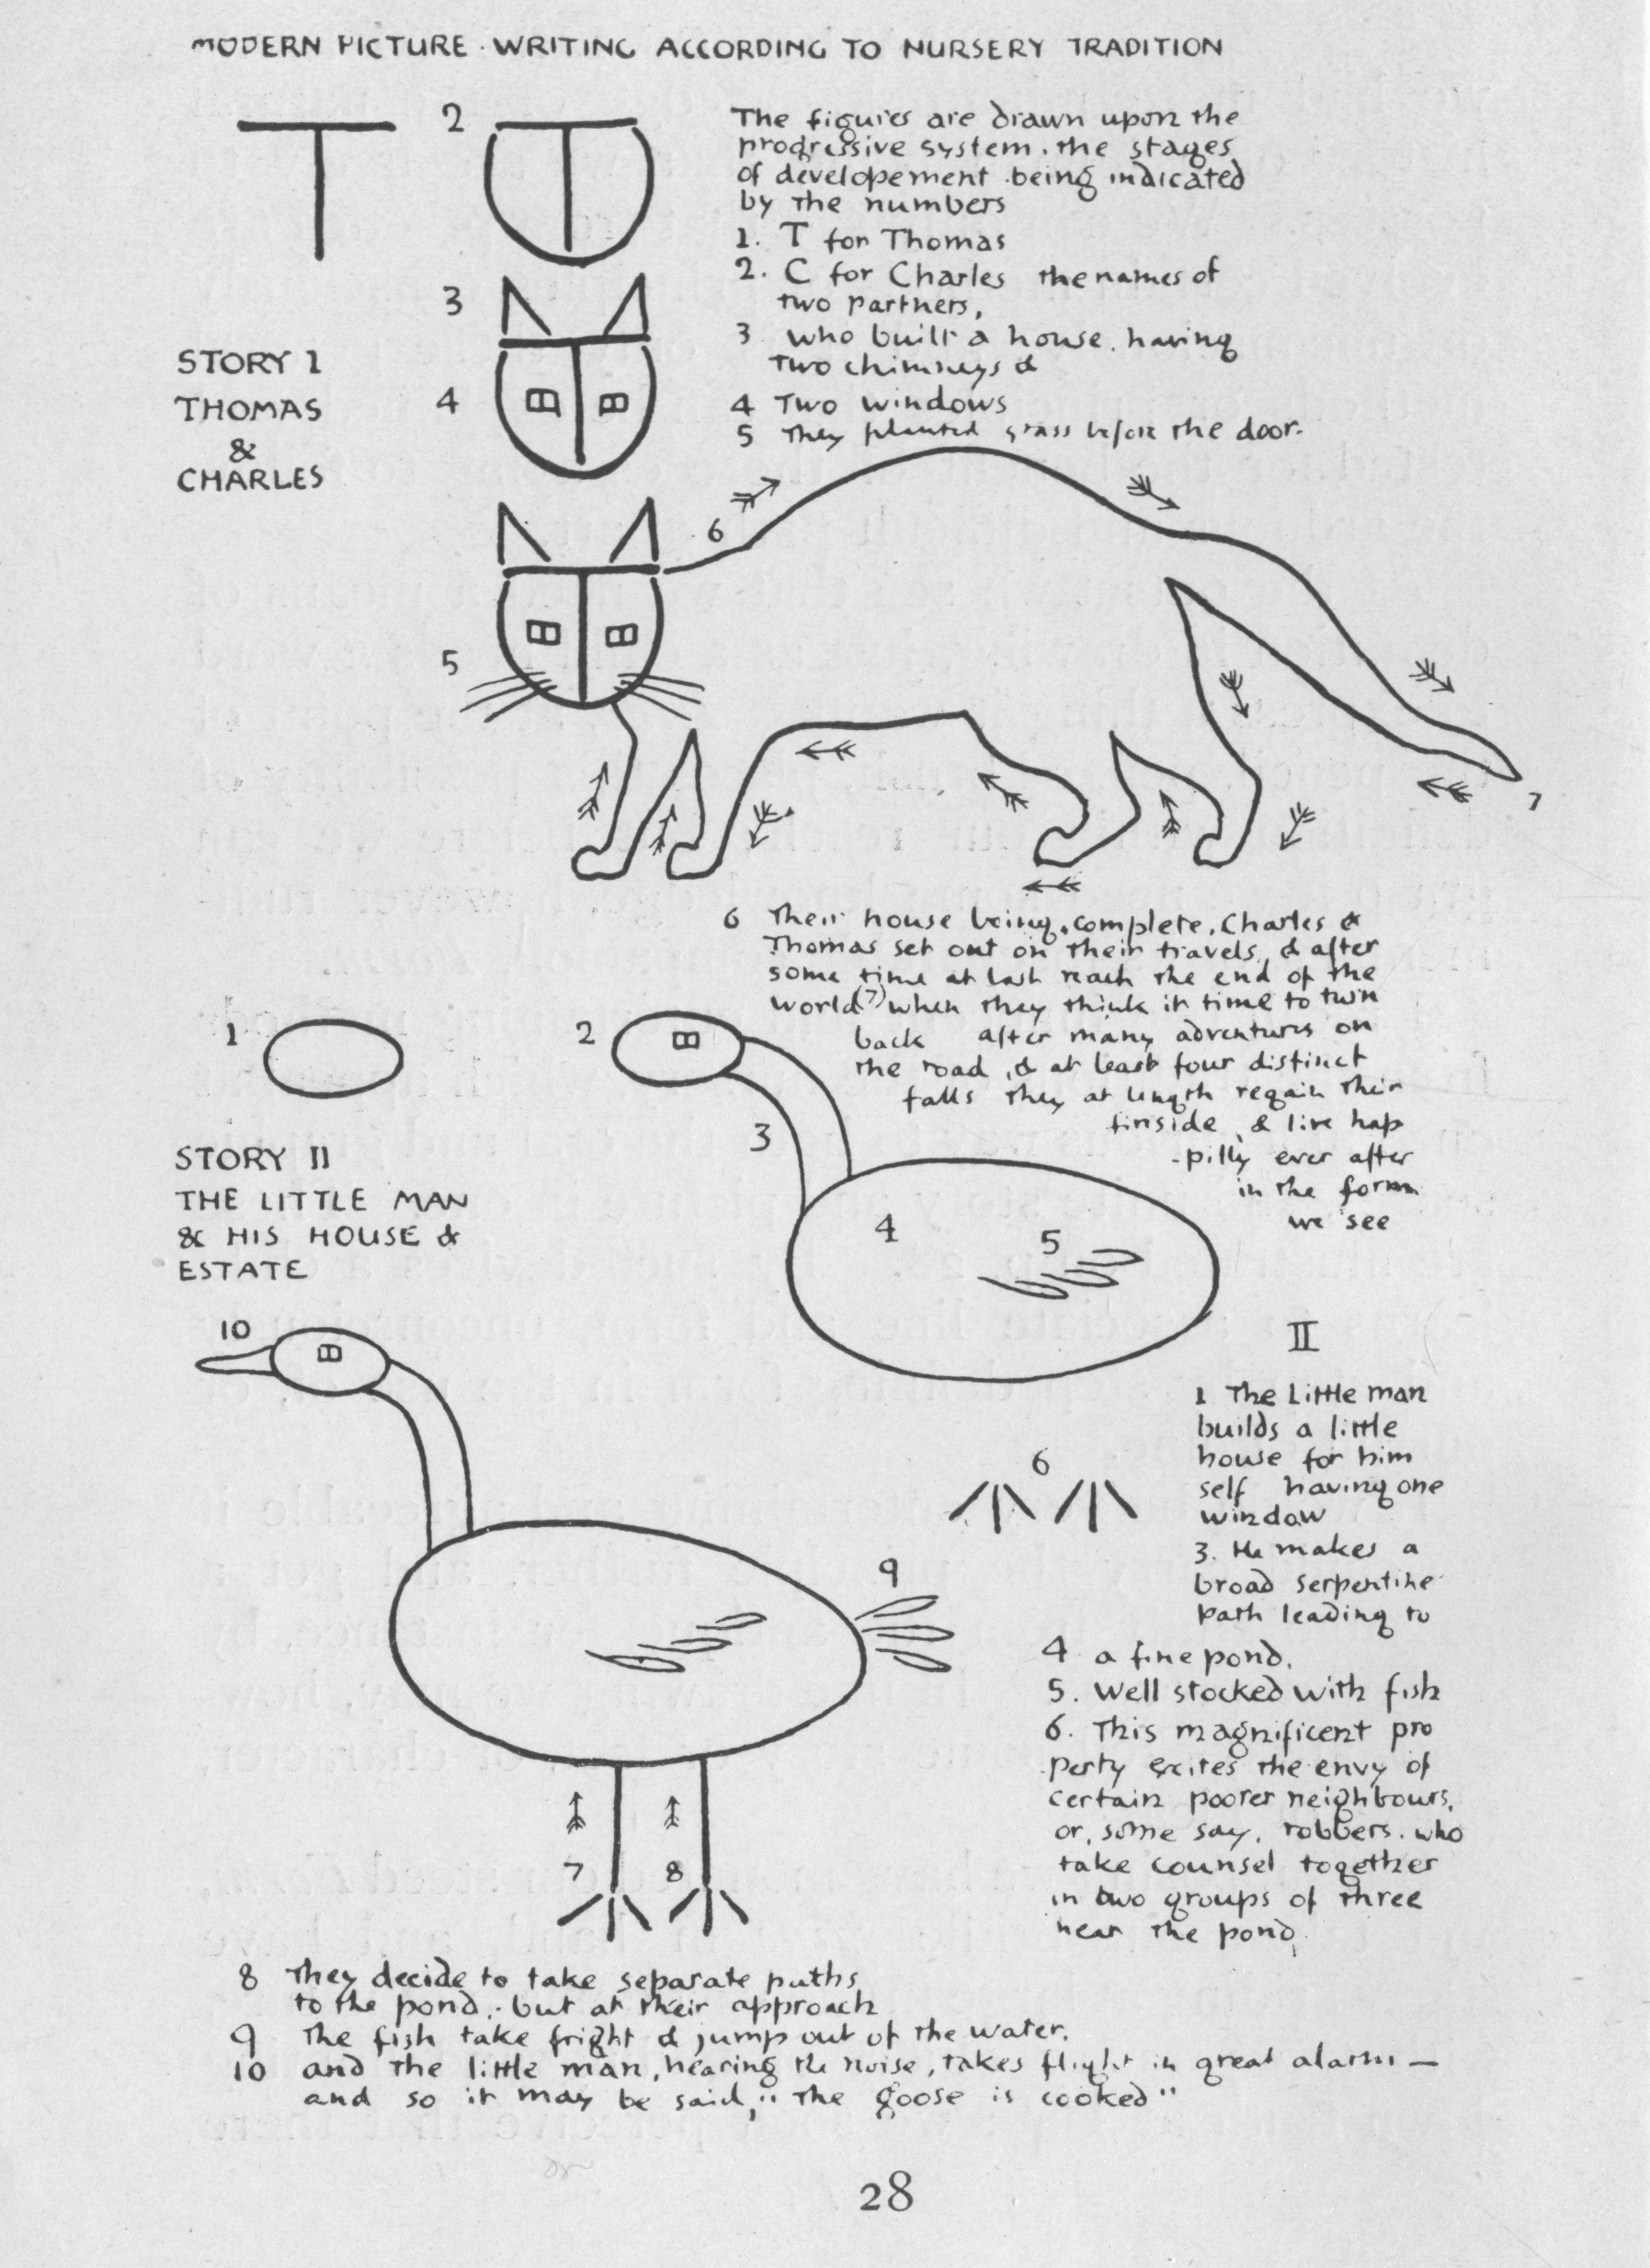 MODERN PICTURE · WRITING ACCORDING TO NURSERY TRADITION
T
2
3
4
STORY I
THOMAS
&
CHARLES
The figures are drawn upon the
progressive system. the stages
of developement being indicated
by the numbers
1. T for Thomas
2. C for Charles the names of
two partners,
3 who built a house. having
two chimneys &
4 Two windows
5 They planted grass before the door.
5
6
7
6 Their house being complete, Charles &
Thomas set out on their travels, & after
some time at last reach the end of the
world (7) when they think it time to turn
back after many adventures on
the road, & at least four distinct
falls they at length regain their
firiside, & live hap
-pilly ever after
in the form
we see
1
2
3
4
5
STORY II
THE LITTLE MAN
& HIS HOUSE &
ESTATE
10
6
9
7
8
II
1 The Little man
builds a little
house for him
self having one
window
3. He makes a
broad serpentine
path leading to
4 a fine pond.
5. Well stocked with fish
6. This magnificent pro
perty excites the envy of
certain poorer neighbours,
or, some say, robbers. who
take counsel together
in two groups of three
near the pond,
8 They decide to take separate paths
to the pond.: but at their approach
9 The fish take fright & jump out of the water.
10 and the little man, hearing the noise, takes flight in great alarm —
and so it may be said, "The goose is cooked"
28